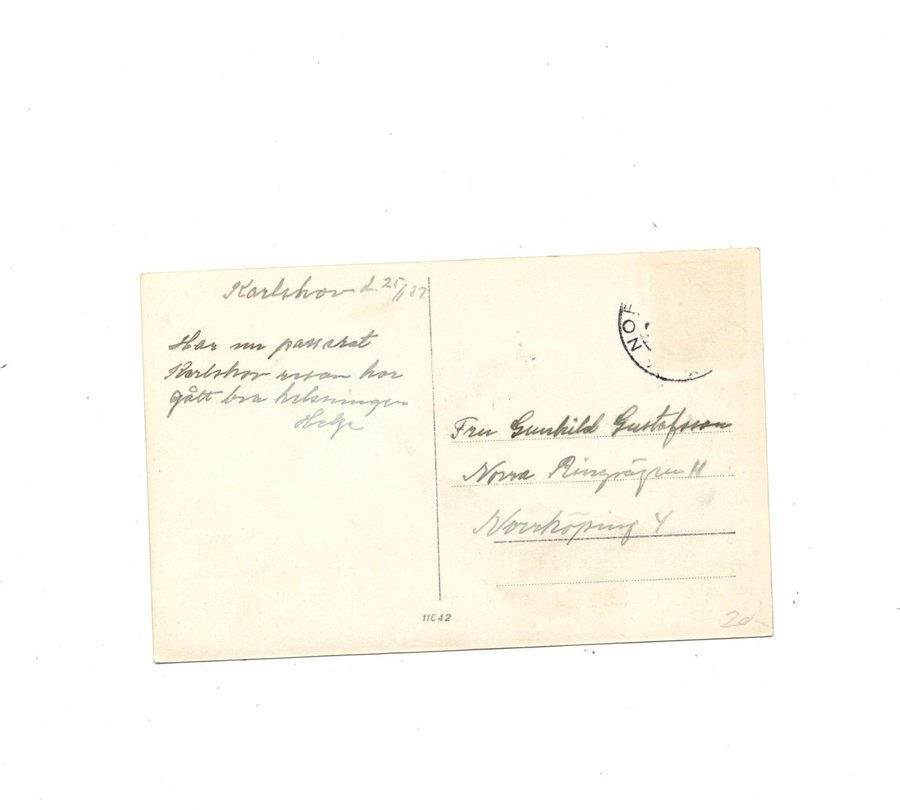 Karlshov d. 25/1 37
Har nu passerat
Karlshov resan har
gått bra helsningen
Helge
NOR
Fru Gunhild Gustafsson
Norra Ringvägen 11
Norrköping 4
11042
20-